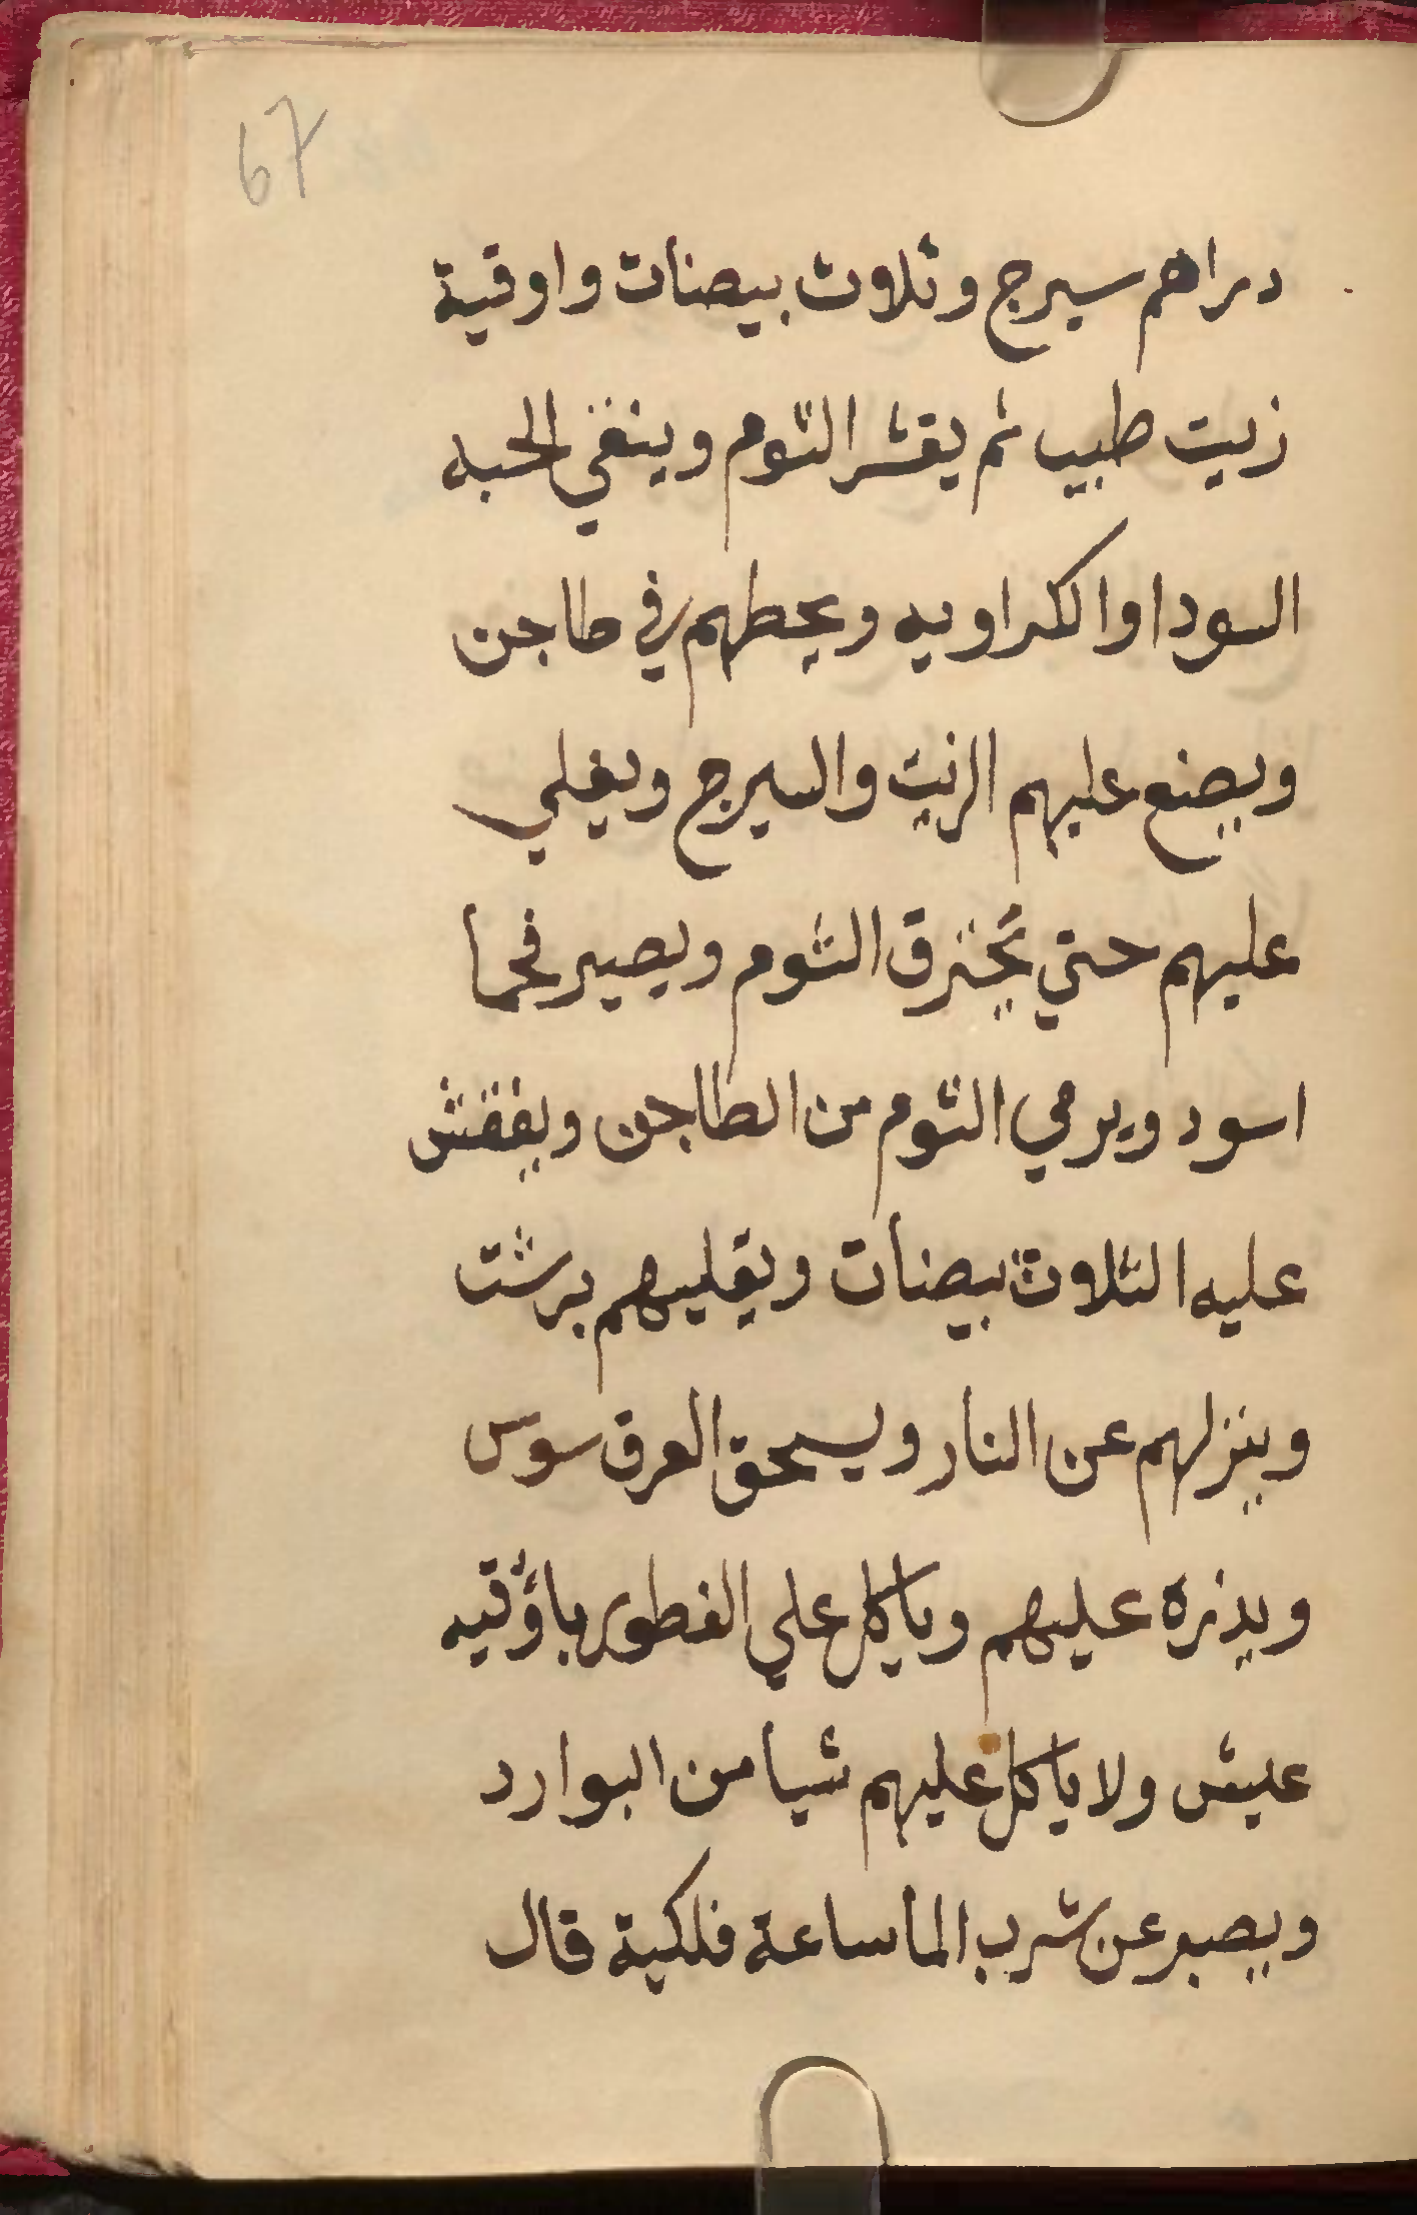 67
دراهم سيرج وثلاوث بيصنات واوقية
زيت طيب ثم يقشر الثوم وينقي الحبه
السودا والكراويه ويحطهم في طاجن
ويصنع عليهم الزيت والسيرج ويغلي
عليهم حتي يحترق الثوم ويصير فحما
اسود ويرمي الثوم من الطاجن ويفقش
عليه الثلاوث بيضات ويقليهم برشت
وينزلهم عن النار ويسحق العرق سوس
ويذره عليهم وياكل علي الفطور باؤقيه
عيش ولا ياكل عليهم شيا من البوارد
ويصبر عن شرب الما ساعة فلكية قال